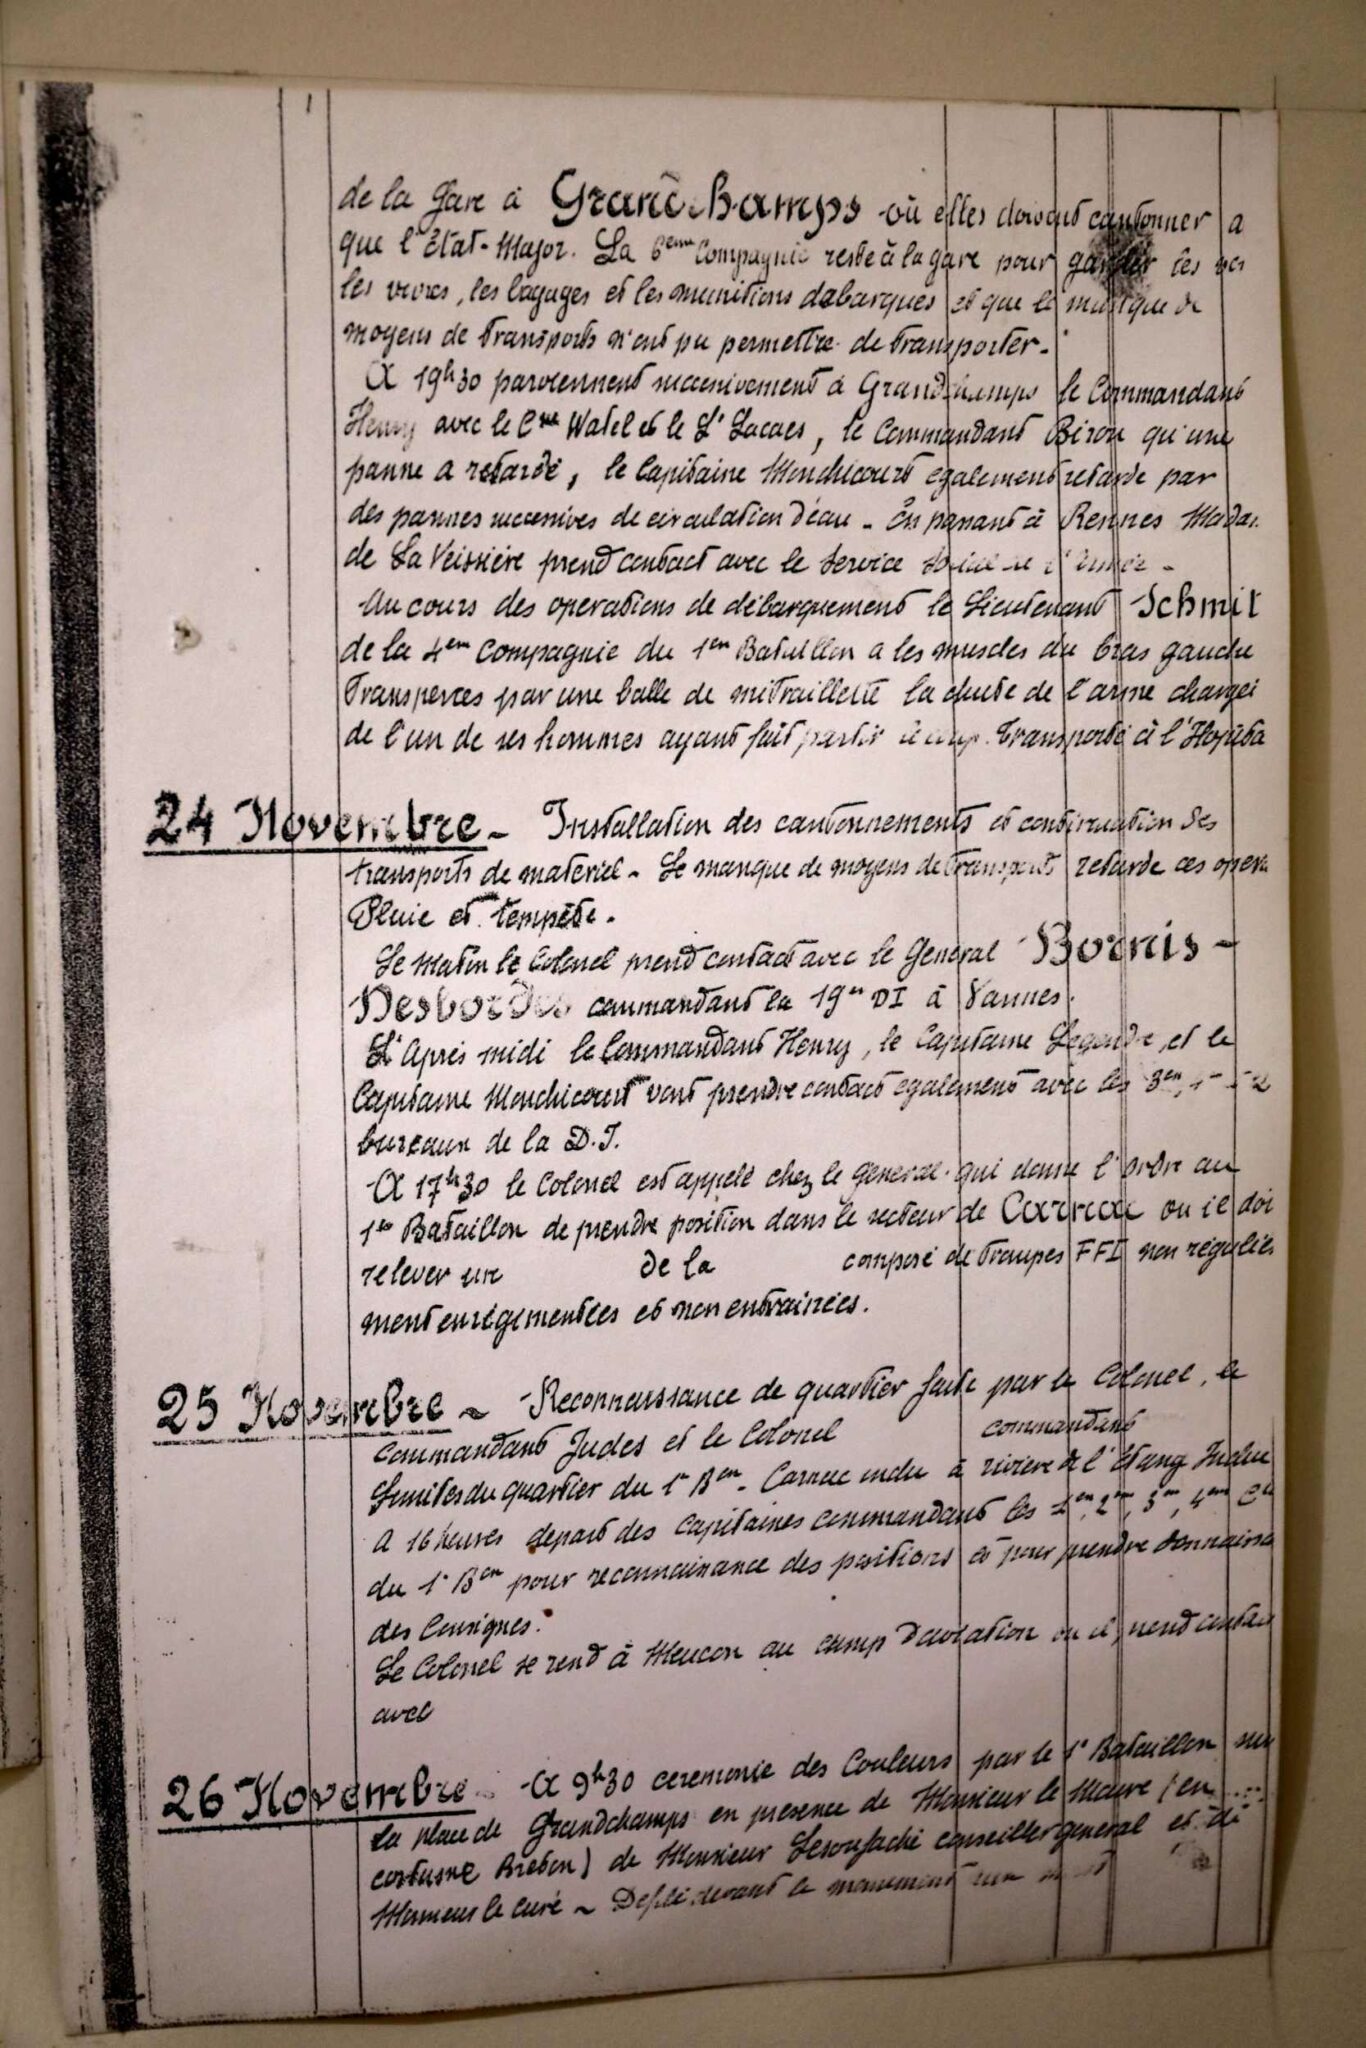 de la Gare à Grandchamps où elles doivent cantonner a
que l'État-Major. La 6ème Compagnie reste à la gare pour garder les
les vivres, les bagages et les munitions debarques et que le manque de
moyens de transports n'ont pu permettre de transporter.
A 19h30 parviennent successivement à Grandchamps le Commandant
Henry avec le Cne Watel et le Lt Lacaes, le Commandant Biron qu'une
panne a retardé, le Capitaine Monchicourt egalement retarde par
des pannes successives de circulation d'eau - En passant à Rennes Madam
de La Veissière prend contact avec le Service Social de l'Armée -
Au cours des operations de débarquement le Lieutenant Schmit
de la 4em Compagnie du 1er Bataillon a les muscles du bras gauche
transperces par une balle de mitraillette la chute de l'arme chargée
de l'un de ses hommes ayant fait partir le coup. Transporté à l'Hopita
24 Novembre - Installation des cantonnements et continuation des
transports de materiel - Le manque de moyens de transport retarde ces opera
Pluie et tempête.
Le Matin le Colonel prend contact avec le General Bornis -
Desbordes commandant la 19em DI à Vannes.
L'Après midi le Commandant Henry, le Capitaine Legendre, et le
Capitaine Monchicourt vont prendre contact egalement avec les 3em,
bureaux de la D.I.
A 17h30 le Colonel est appelé chez le General qui donne l'ordre au
1er Bataillon de prendre position dans le secteur de Carnac ou il doi
relever un de la composé de troupes FFI non régulies
ment enrégimentées et non entrainées.
25 Novembre - Reconnaissance de quartier faite par le Colonel, le
Commandant Judes et le Colonel commandant
Limites du quartier du 1er Bon - Carnac inclu à rivière de l'Etang Inclue
A 16 heures depart des Capitaines commandant les 1ere, 2em, 3em, 4em Cie
du 1er Bon pour reconnaissance des positions et pour prendre connaissa
des Consignes.
Le Colonel se rend à Meucon au camp d'aviation ou il prend contact
avec
26 Novembre - A 9h30 ceremonie des Couleurs par le 1er Bataillon sur
la place de Grandchamps en presence de Monsieur le Maire (en
costume Breton) de Monsieur conseiller general et de
Monsieur le curé - Defilé devant le monument aux